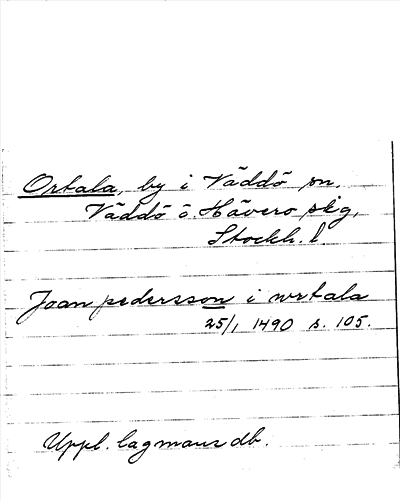 Ortala, by i Väddö sn.
Väddö o. Hävero skg,
Stockh. l.
Joan pedersson i wrtala
25/1 1490 s. 105.
Uppl. lagmans db.